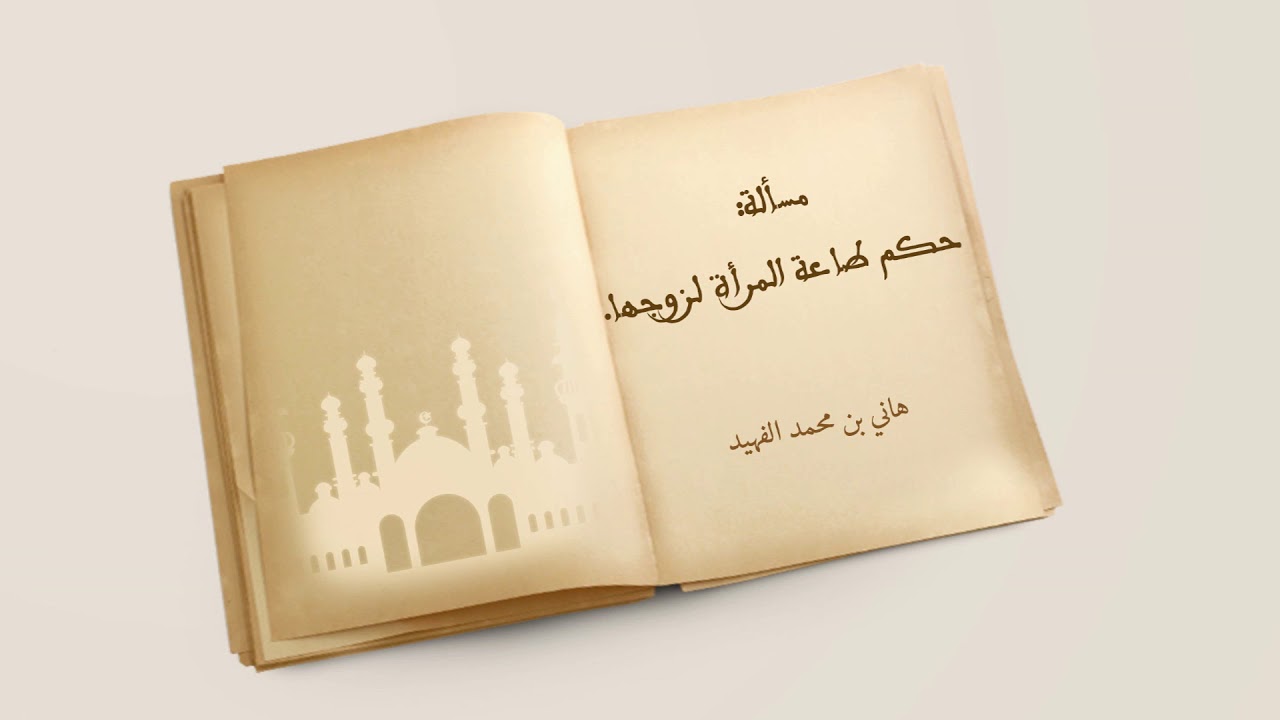 مسألة:
حكم طاعة المرأة لزوجها.
هاني بن محمد الفهيد